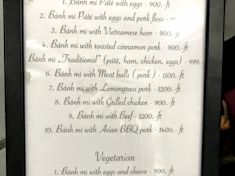 1. Bánh mi Pâté with eggs - 900.-ft
2. Bánh mi Pâté with eggs and pork floss -
3. Bánh mi with Vietnamese ham - 900.-ft
4. Bánh mi with roasted cinnamon pork - 900.-ft
Bánh mi „Traditional" (paté, ham, chicken, eggs) - 999.
6. Bánh mi with Meat balls ( pork ) - 1100.-ft
7. Bánh mi with Lemongrass pork - 1200.-ft
8. Bánh mi with Grilled chicken - 900.-ft
9. Bánh mi with Beef - 1200.-ft
10. Bánh mi with Asian BBQ pork - 1400.-ft
Vegetarian
1. Bánh mi with eggs and cheese - 900.-ft